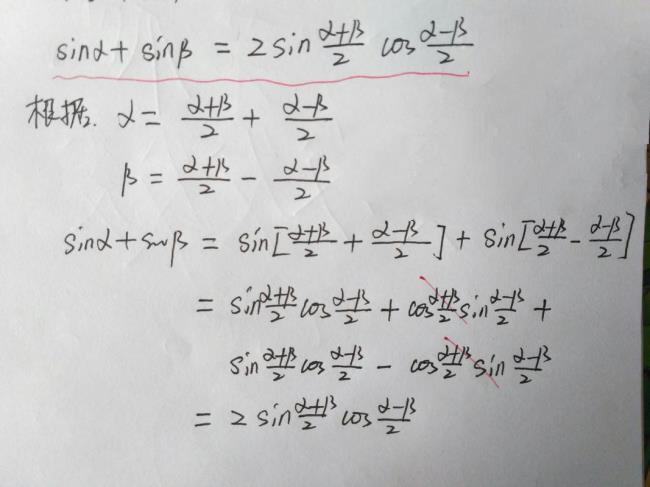 sinα + sinβ = 2 sin (α+β)/2 cos (α-β)/2
根据: α = (α+β)/2 + (α-β)/2
β = (α+β)/2 - (α-β)/2
sinα + sinβ = sin[(α+β)/2 + (α-β)/2] + sin[(α+β)/2 - (α-β)/2]
= sin (α+β)/2 cos (α-β)/2 + cos (α+β)/2 sin (α-β)/2 +
sin (α+β)/2 cos (α-β)/2 - cos (α+β)/2 sin (α-β)/2
= 2 sin (α+β)/2 cos (α-β)/2